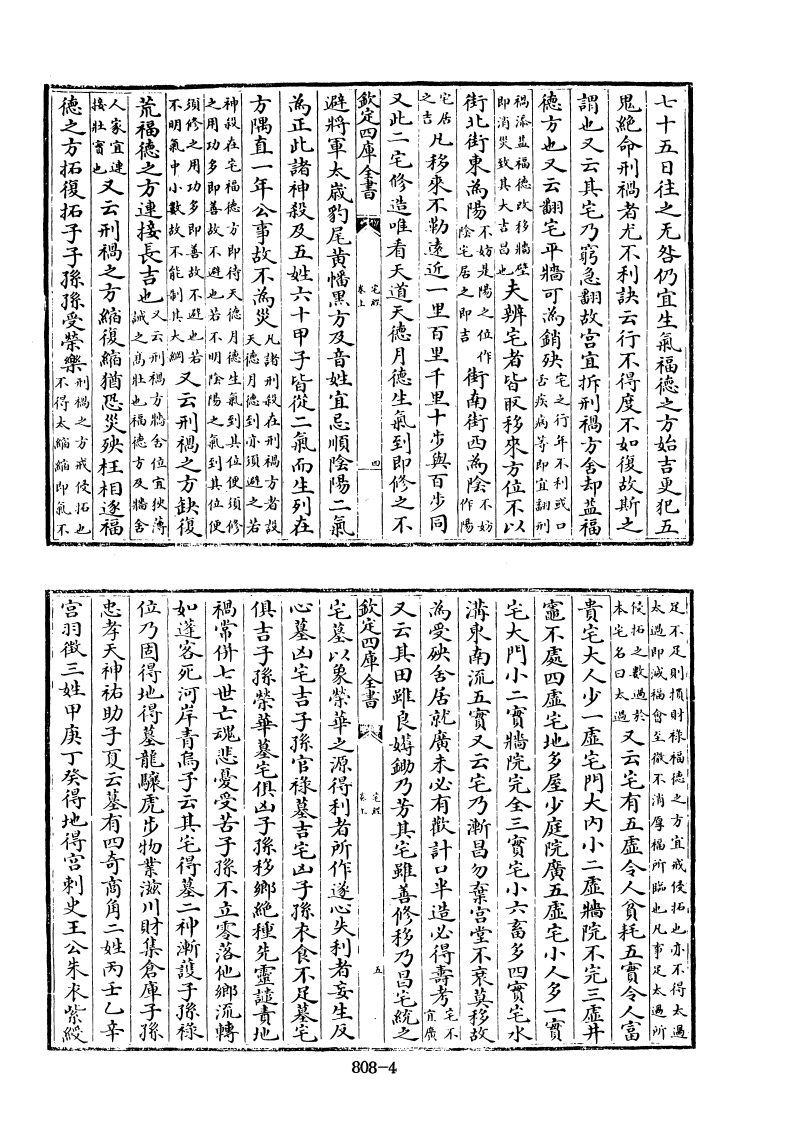 七十五日往之无咎仍宜生氣福德之方始吉更犯五
鬼絶命刑禍者尤不利訣云行不得度不如復故斯之
謂也又云其宅乃窮急翻故宫宜拆刑禍方舍却益福
德方也又云翻宅平牆可為銷殃宅之行年不利或口舌疾病等即宜翻刑
禍添益福德改移牆壁即消災致其大吉昌也夫辨宅者皆取移來方位不以
街北街東為陽不妨是陽之位作陰宅居之即吉街南街西為陰不妨作陽
宅居之吉凡移來不勒遠近一里百里千里十步與百步同
又此二宅修造唯看天道天德月德生氣到即修之不
欽定四庫全書 宅經卷上 四
避將軍太歲豹尾黃幡黑方及音姓宜忌順陰陽二氣
為正此諸神殺及五姓六十甲子皆從二氣而生列在
方隅直一年公事故不為災凡諸刑殺在刑禍方者設天德月德到亦須避之若
神殺在宅福德方即待天德月德生氣到其位便須修之用功多即善故不避也若不明陰陽之氣到其位便
須修之用功多即善故不避也若不明氣中小數故不能制其大綱又云刑禍之方缺復
荒福德之方連接長吉也又云刑禍方牆舍位宜狹薄誡之高壯也福德方及牆舍
人家宜連接壯實也又云刑禍之方縮復縮猶恐災殃枉相逐福
德之方拓復拓子子孫孫受榮樂刑禍之方戒侵拓也不得太縮縮即氣不
足不足則損財祿福德之方宜戒侵拓也亦不得太過太過即減福會至徵不消厚福所臨也凡事足太過所
侵拓之數過於本宅名曰太過又云宅有五虛令人貧耗五實令人富
貴宅大人少一虛宅門大内小二虛牆院不完三虛井
竈不處四虛宅地多屋少庭院廣五虛宅小人多一實
宅大門小二實牆院完全三實宅小六畜多四實宅水
溝東南流五實又云宅乃漸昌勿棄宫堂不衰莫移故
為受殃舍居就廣未必有歡計口半造必得壽考宅不宜廣
又云其田雖良媷鋤乃芳其宅雖善修移乃昌宅統之
欽定四庫全書 宅經卷上 五
宅墓以象榮華之源得利者所作遂心失利者妄生反
心墓凶宅吉子孫官祿墓吉宅凶子孫衣食不足墓宅
俱吉子孫榮華墓宅俱凶子孫移鄉絶種先靈譴責地
禍常併七世亡魂悲憂受苦子孫不立零落他鄉流轉
如蓬客死河岸青烏子云其宅得墓二神漸護子孫祿
位乃固得地得墓龍驤虎步物業滋川財集倉庫子孫
忠孝天神祐助子夏云墓有四奇商角二姓丙壬乙辛
宫羽徵三姓甲庚丁癸得地得宫刺史王公朱衣紫綬
808-4